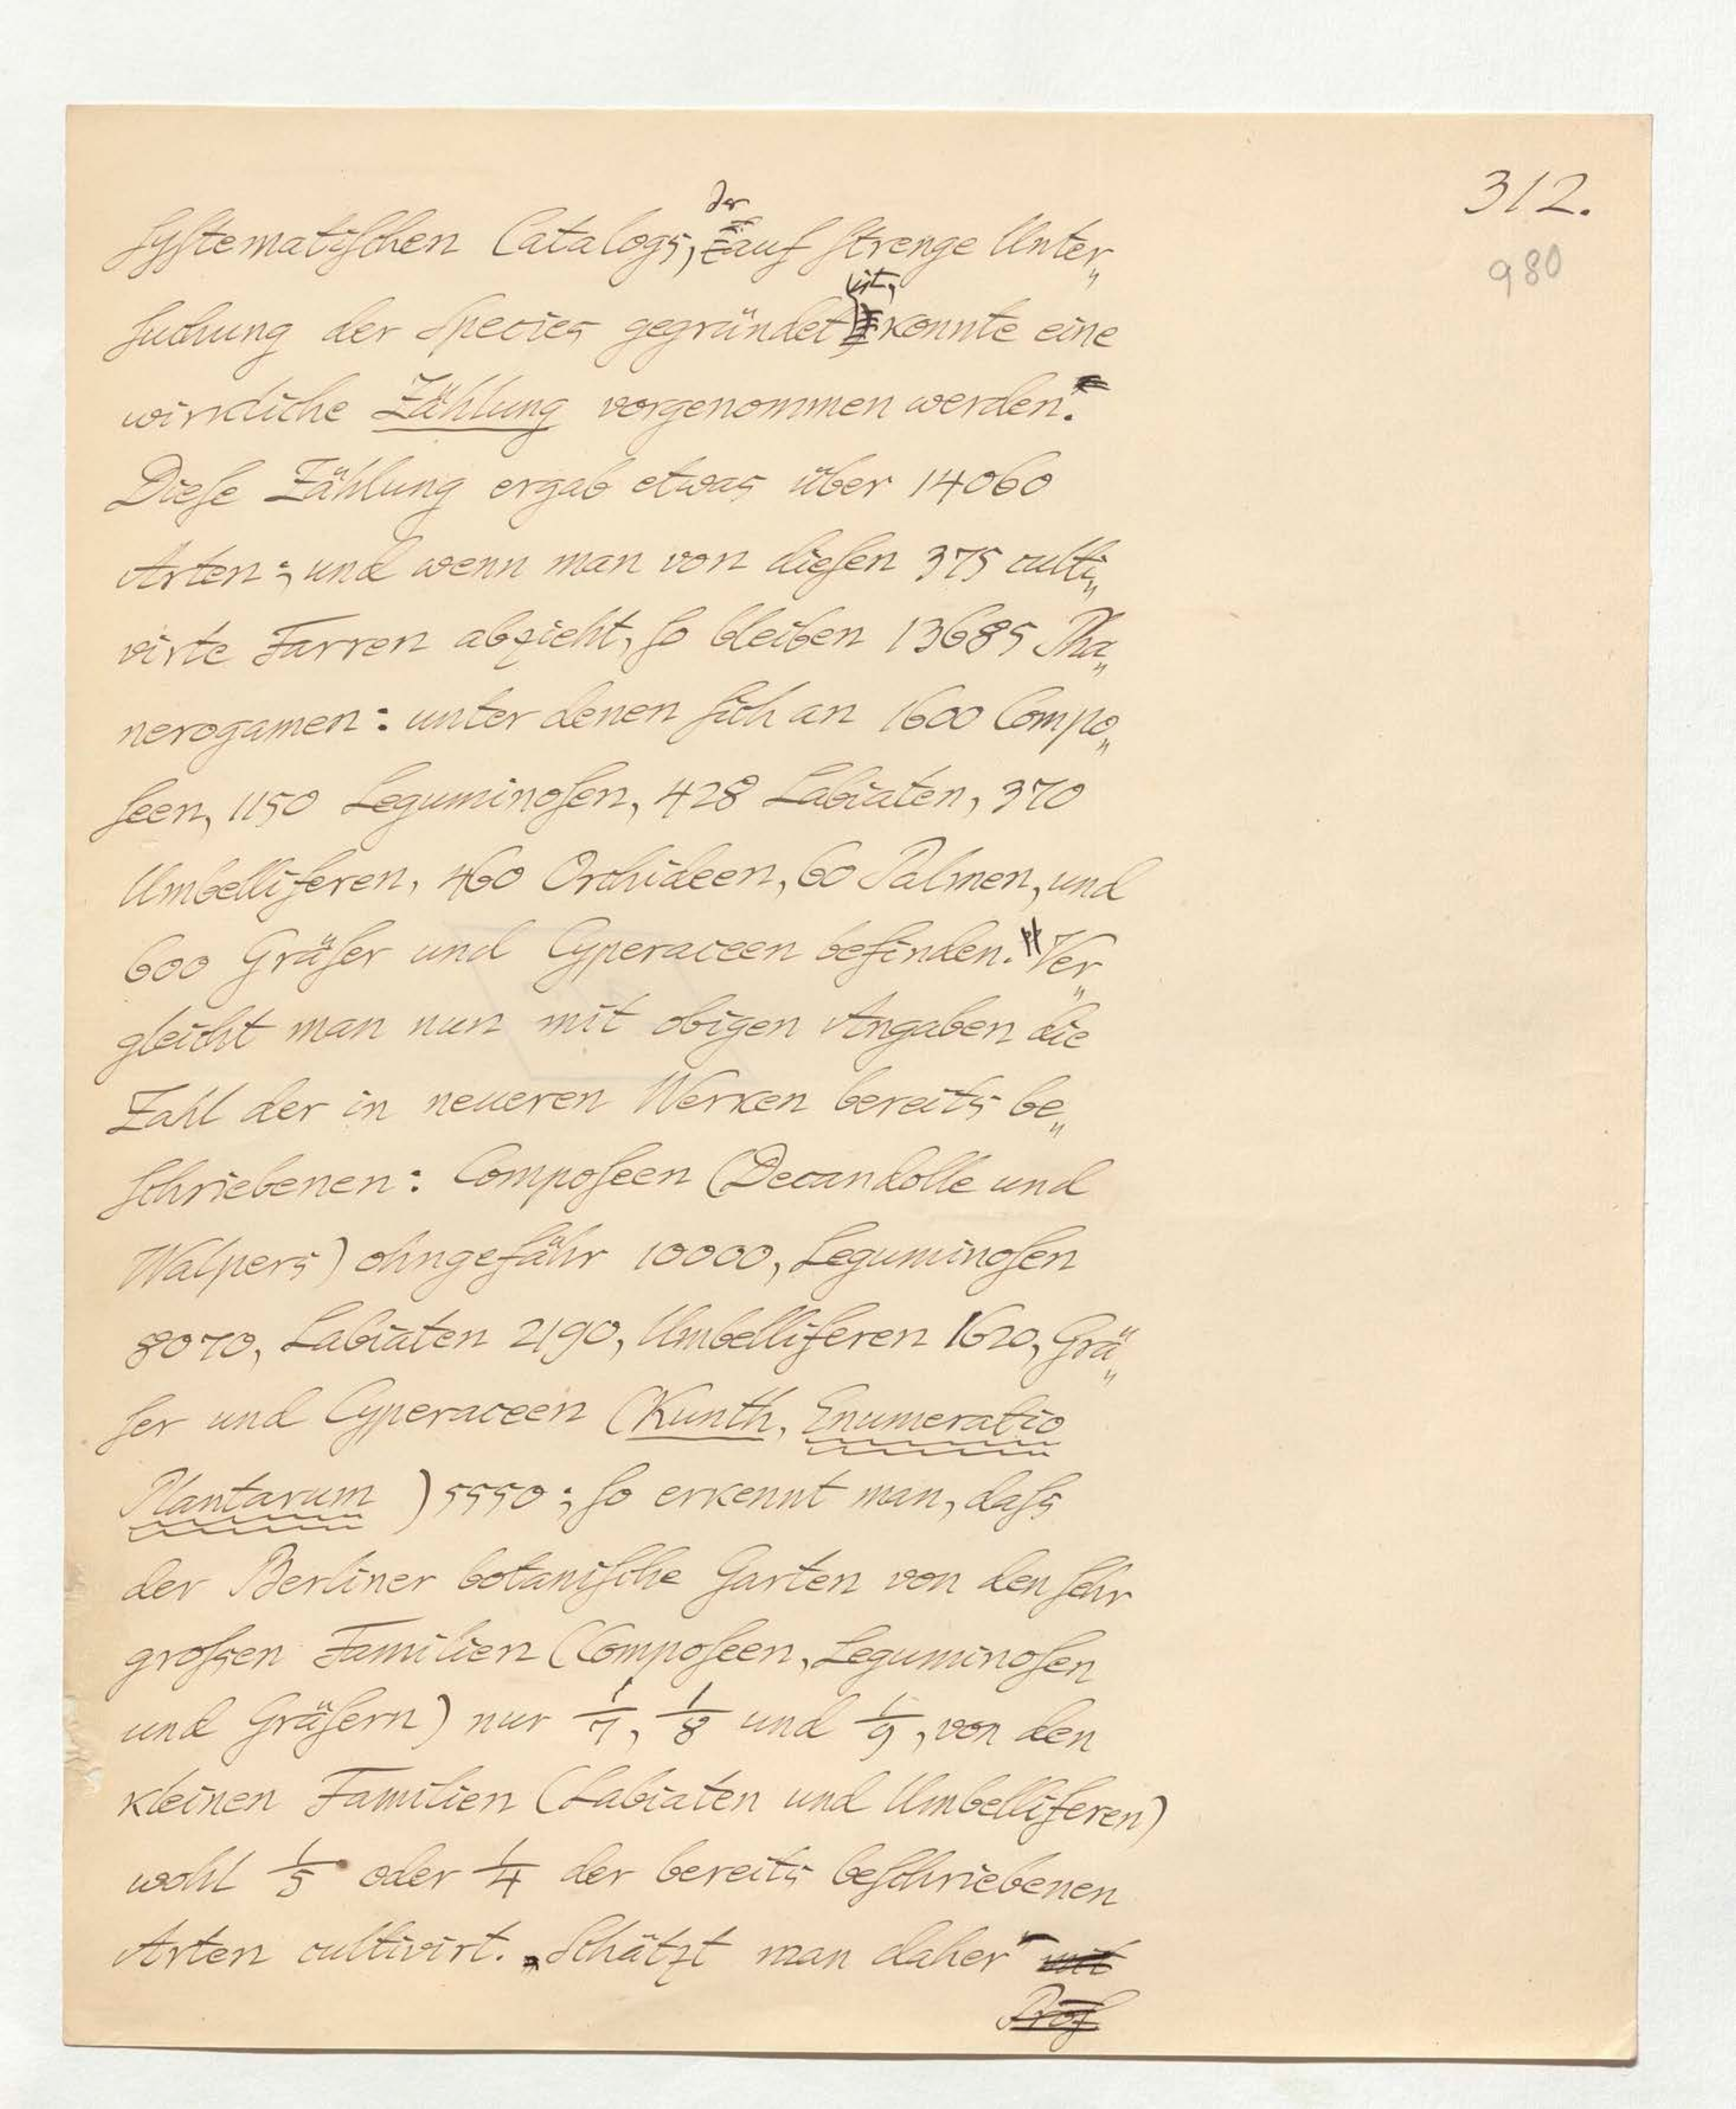 312.
980
systematischen Catalogs, der auf strenge Unter„
suchung der Species gegründet ist, konnte eine
wirkliche Zählung vorgenommen werden.
Diese Zählung ergab etwas über 14060
Arten; und wenn man von diesen 375 culti„
virte Farren abzieht, so bleiben 13685 Pha„
nerogamen: unter denen sich an 1600 Compo„
seen, 1150 Leguminosen, 428 Labiaten, 370
Umbelliferen, 460 Orchideen, 60 Palmen, und
600 Gräser und Cyperaceen befinden." Ver„
gleicht man nun mit obigen Angaben die
Zahl der in neueren Werken bereits be„
schriebenen: Composeen (Decandolle und
Walpers) ohngefähr 10000, Leguminosen
8070, Labiaten 2190, Umbelliferen 1620, Grä„
ser und Cyperaceen (Kunth, Enumeratio
Plantarum ) 5550; so erkennt man, dass
der Berliner botanische Garten von den sehr
grossen Familien (Composeen, Leguminosen
und Gräsern) nur 1/7, 1/8 und 1/9, von den
kleinen Familien (Labiaten und Umbelliferen)
wohl 1/5 oder 1/4 der bereits beschriebenen
Arten cultivirt. „Schätzt man daher" mit
Prof